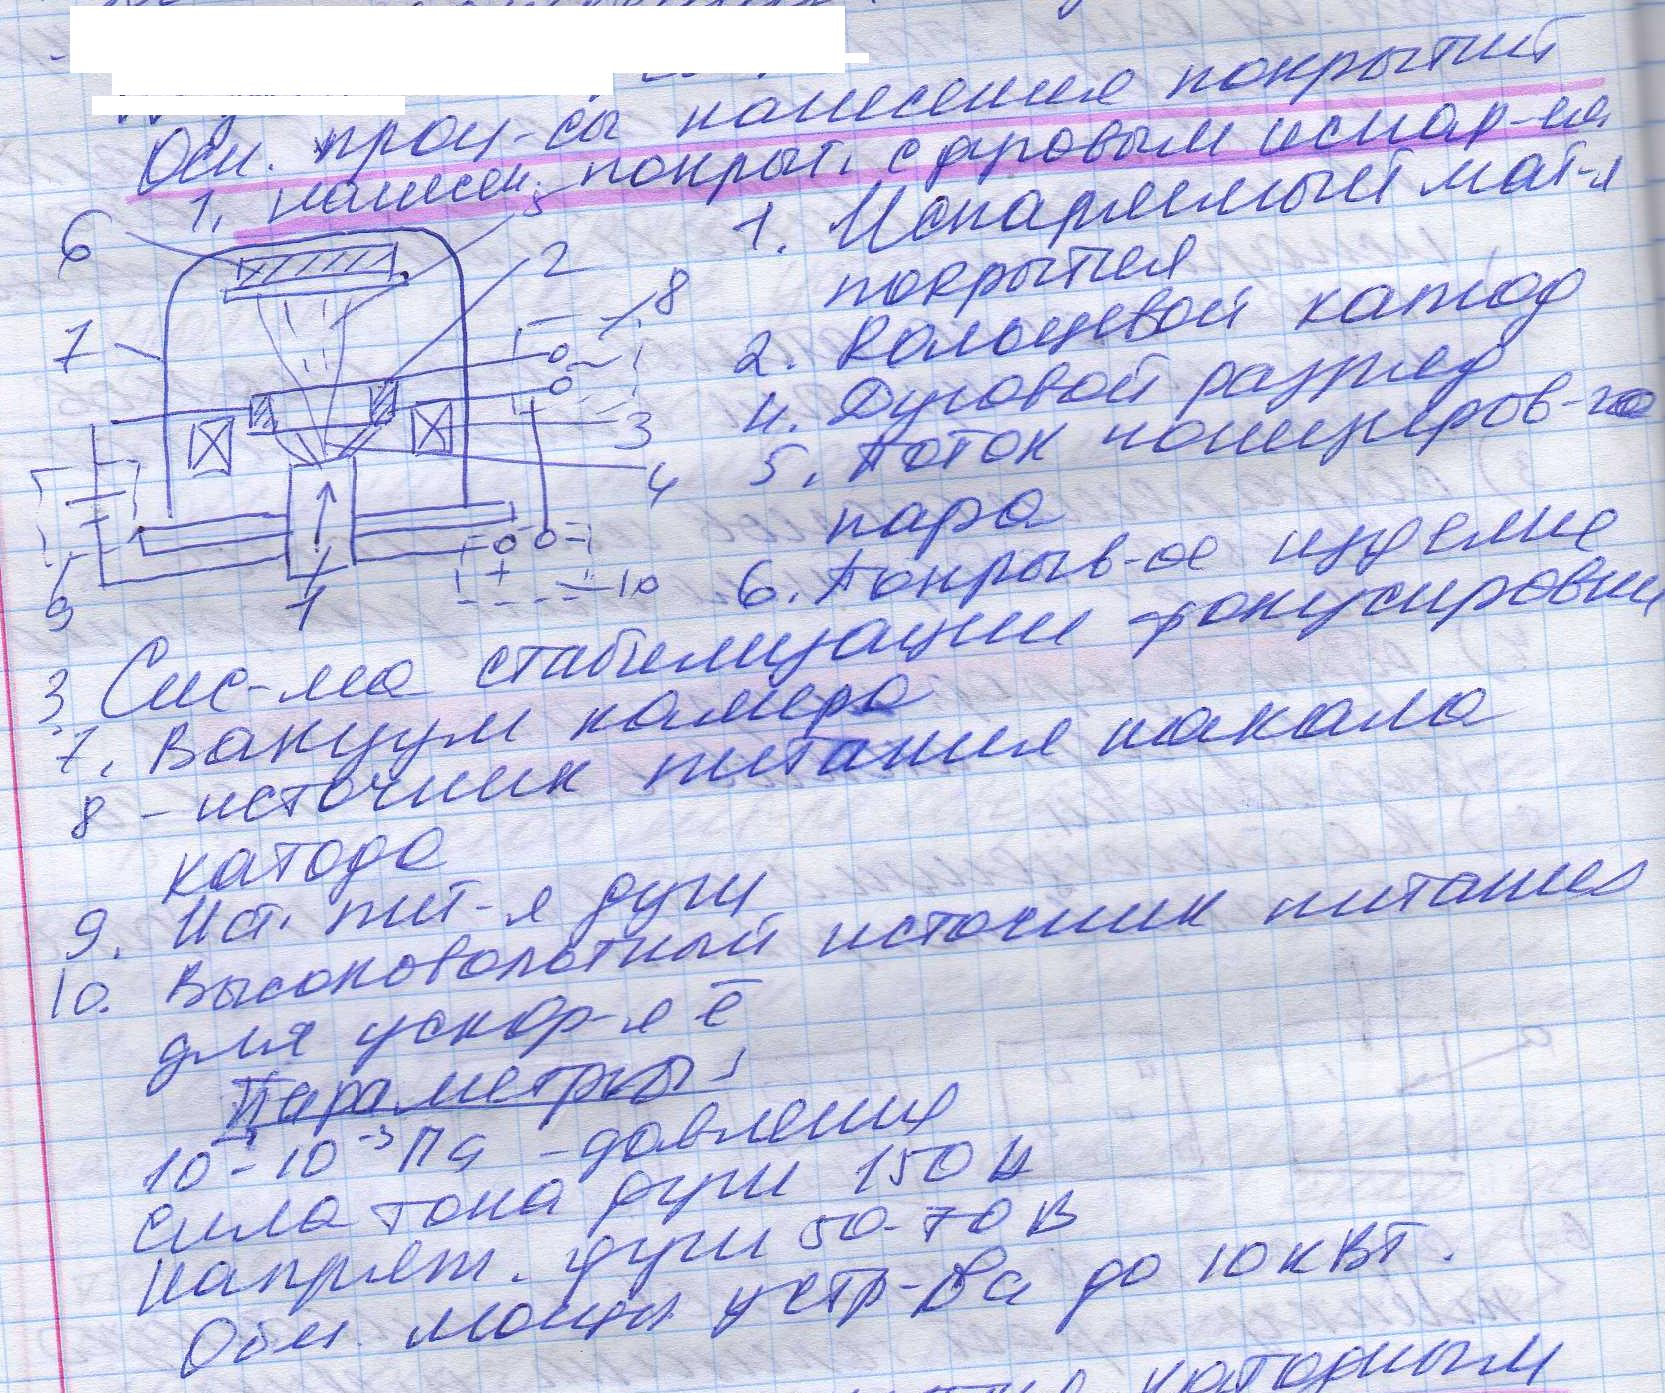 Осн. проц-сы нанесения покрытий
1. нанесен. покрыт. с дуговым испар-ем
1. Испаряемый мат-л
покрытия
2. Кольцевой катод
4. Дуговой разряд
5. Поток ионизиров-го
пара
6. Покрыв-ое изделие
6
5
2
8
7
3
4
9
1
+
10
3 Сис-ма стабилизации фокусировки
7. Вакуум камера
8 – источник питания накала
катода
9. Ист. пит-я дуги
10. Высоковольтный источник питания
для ускор-я ē
Параметры:
10 - 10⁻³ Па - давление
Сила тока дуги 150 А
Напряж. дуги 50-70 В
Общ. мощн устр-ва до 10 кВт.
катодным